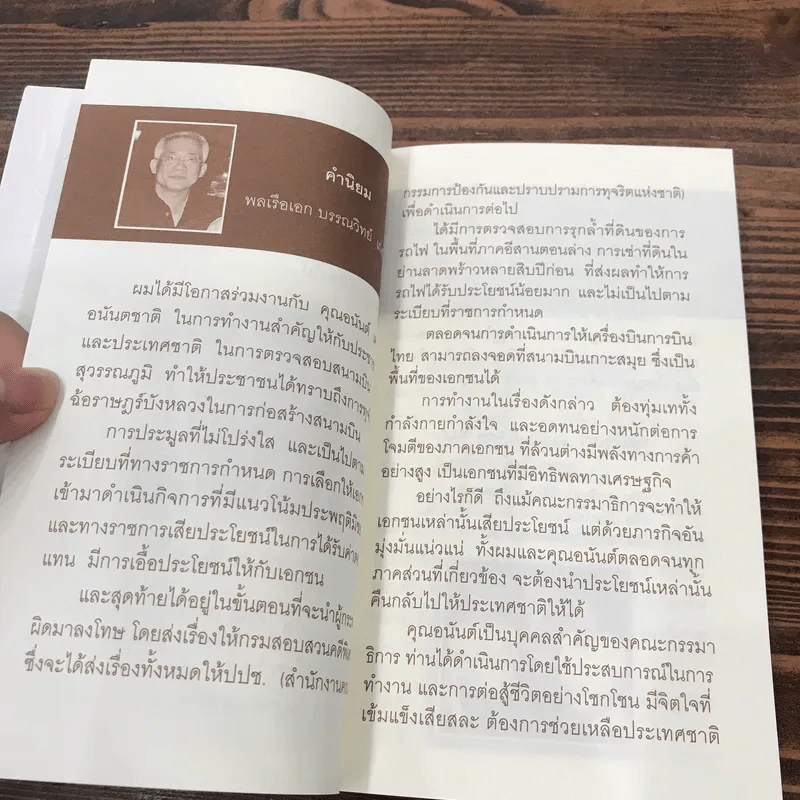 คำนิยม
พลเรือเอก บรรณวิทย์
ผมได้มีโอกาสร่วมงานกับ คุณอนันต์
อนันตชาติ ในการทำงานสำคัญให้กับประชา
และประเทศชาติ ในการตรวจสอบสนามบิน
สุวรรณภูมิ ทำให้ประชาชนได้ทราบถึงการทุจ
ฉ้อราษฎร์บังหลวงในการก่อสร้างสนามบิน
การประมูลที่ไม่โปร่งใส และเป็นไปตาม
ระเบียบที่ทางราชการกำหนด การเลือกให้เอก
เข้ามาดำเนินกิจการที่มีแนวโน้มประพฤติมิช
และทางราชการเสียประโยชน์ในการได้รับค่าต
แทน มีการเอื้อประโยชน์ให้กับเอกชน
และสุดท้ายได้อยู่ในขั้นตอนที่จะนำผู้กระ
ผิดมาลงโทษ โดยส่งเรื่องให้กรมสอบสวนคดีพิเ
ซึ่งจะได้ส่งเรื่องทั้งหมดให้ปปช. (สำนักงานคณ
กรรมการป้องกันและปราบปรามการทุจริตแห่งชาติ)
เพื่อดำเนินการต่อไป
ได้มีการตรวจสอบการรุกล้ำที่ดินของการ
รถไฟ ในพื้นที่ภาคอีสานตอนล่าง การเช่าที่ดินใน
ย่านลาดพร้าวหลายสิบปีก่อน ที่ส่งผลทำให้การ
รถไฟได้รับประโยชน์น้อยมาก และไม่เป็นไปตาม
ระเบียบที่ราชการกำหนด
ตลอดจนการดำเนินการให้เครื่องบินการบิน
ไทย สามารถลงจอดที่สนามบินเกาะสมุย ซึ่งเป็น
พื้นที่ของเอกชนได้
การทำงานในเรื่องดังกล่าว ต้องทุ่มเททั้ง
กำลังกายกำลังใจ และอดทนอย่างหนักต่อการ
โจมตีของภาคเอกชน ที่ล้วนต่างมีพลังทางการค้า
อย่างสูง เป็นเอกชนที่มีอิทธิพลทางเศรษฐกิจ
อย่างไรก็ดี ถึงแม้คณะกรรมาธิการจะทำให้
เอกชนเหล่านั้นเสียประโยชน์ แต่ด้วยภารกิจอัน
มุ่งมั่นแน่วแน่ ทั้งผมและคุณอนันต์ตลอดจนทุก
ภาคส่วนที่เกี่ยวข้อง จะต้องนำประโยชน์เหล่านั้น
คืนกลับไปให้ประเทศชาติให้ได้
คุณอนันต์เป็นบุคคลสำคัญของคณะกรรมา
ธิการ ท่านได้ดำเนินการโดยใช้ประสบการณ์ในการ
ทำงาน และการต่อสู้ชีวิตอย่างโชกโชน มีจิตใจที่
เข้มแข็งเสียสละ ต้องการช่วยเหลือประเทศชาติ